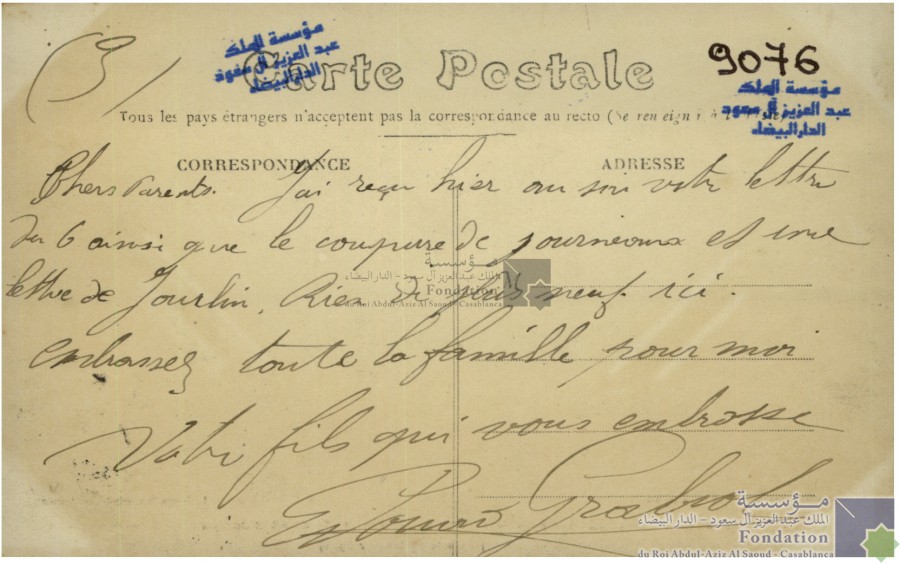 (3)
مؤسسة الملك
عبد العزيز آل سعود
الدار البيضاء
Carte Postale
9076
مؤسسة الملك
عبد العزيز آل سعود
الدار البيضاء
Tous les pays étrangers n'acceptent pas la correspondance au recto (Se renseign
CORRESPONDANCE
ADRESSE
Chers Parents. J'ai reçu hier au soir votre lettre
du 6 ainsi que le coupure de journeaux et une
lettre de Jourlin. Rien de plus neuf ici.
embrassez toute la famille pour moi
Votre fils qui vous embrasse
مؤسسة
الملك عبد العزيز آل سعود - الدار البيضاء
Fondation
du Roi Abdul-Aziz Al Saoud - Casablanca
مؤسسة
الملك عبد العزيز آل سعود - الدار البيضاء
Fondation
du Roi Abdul-Aziz Al Saoud - Casablanca